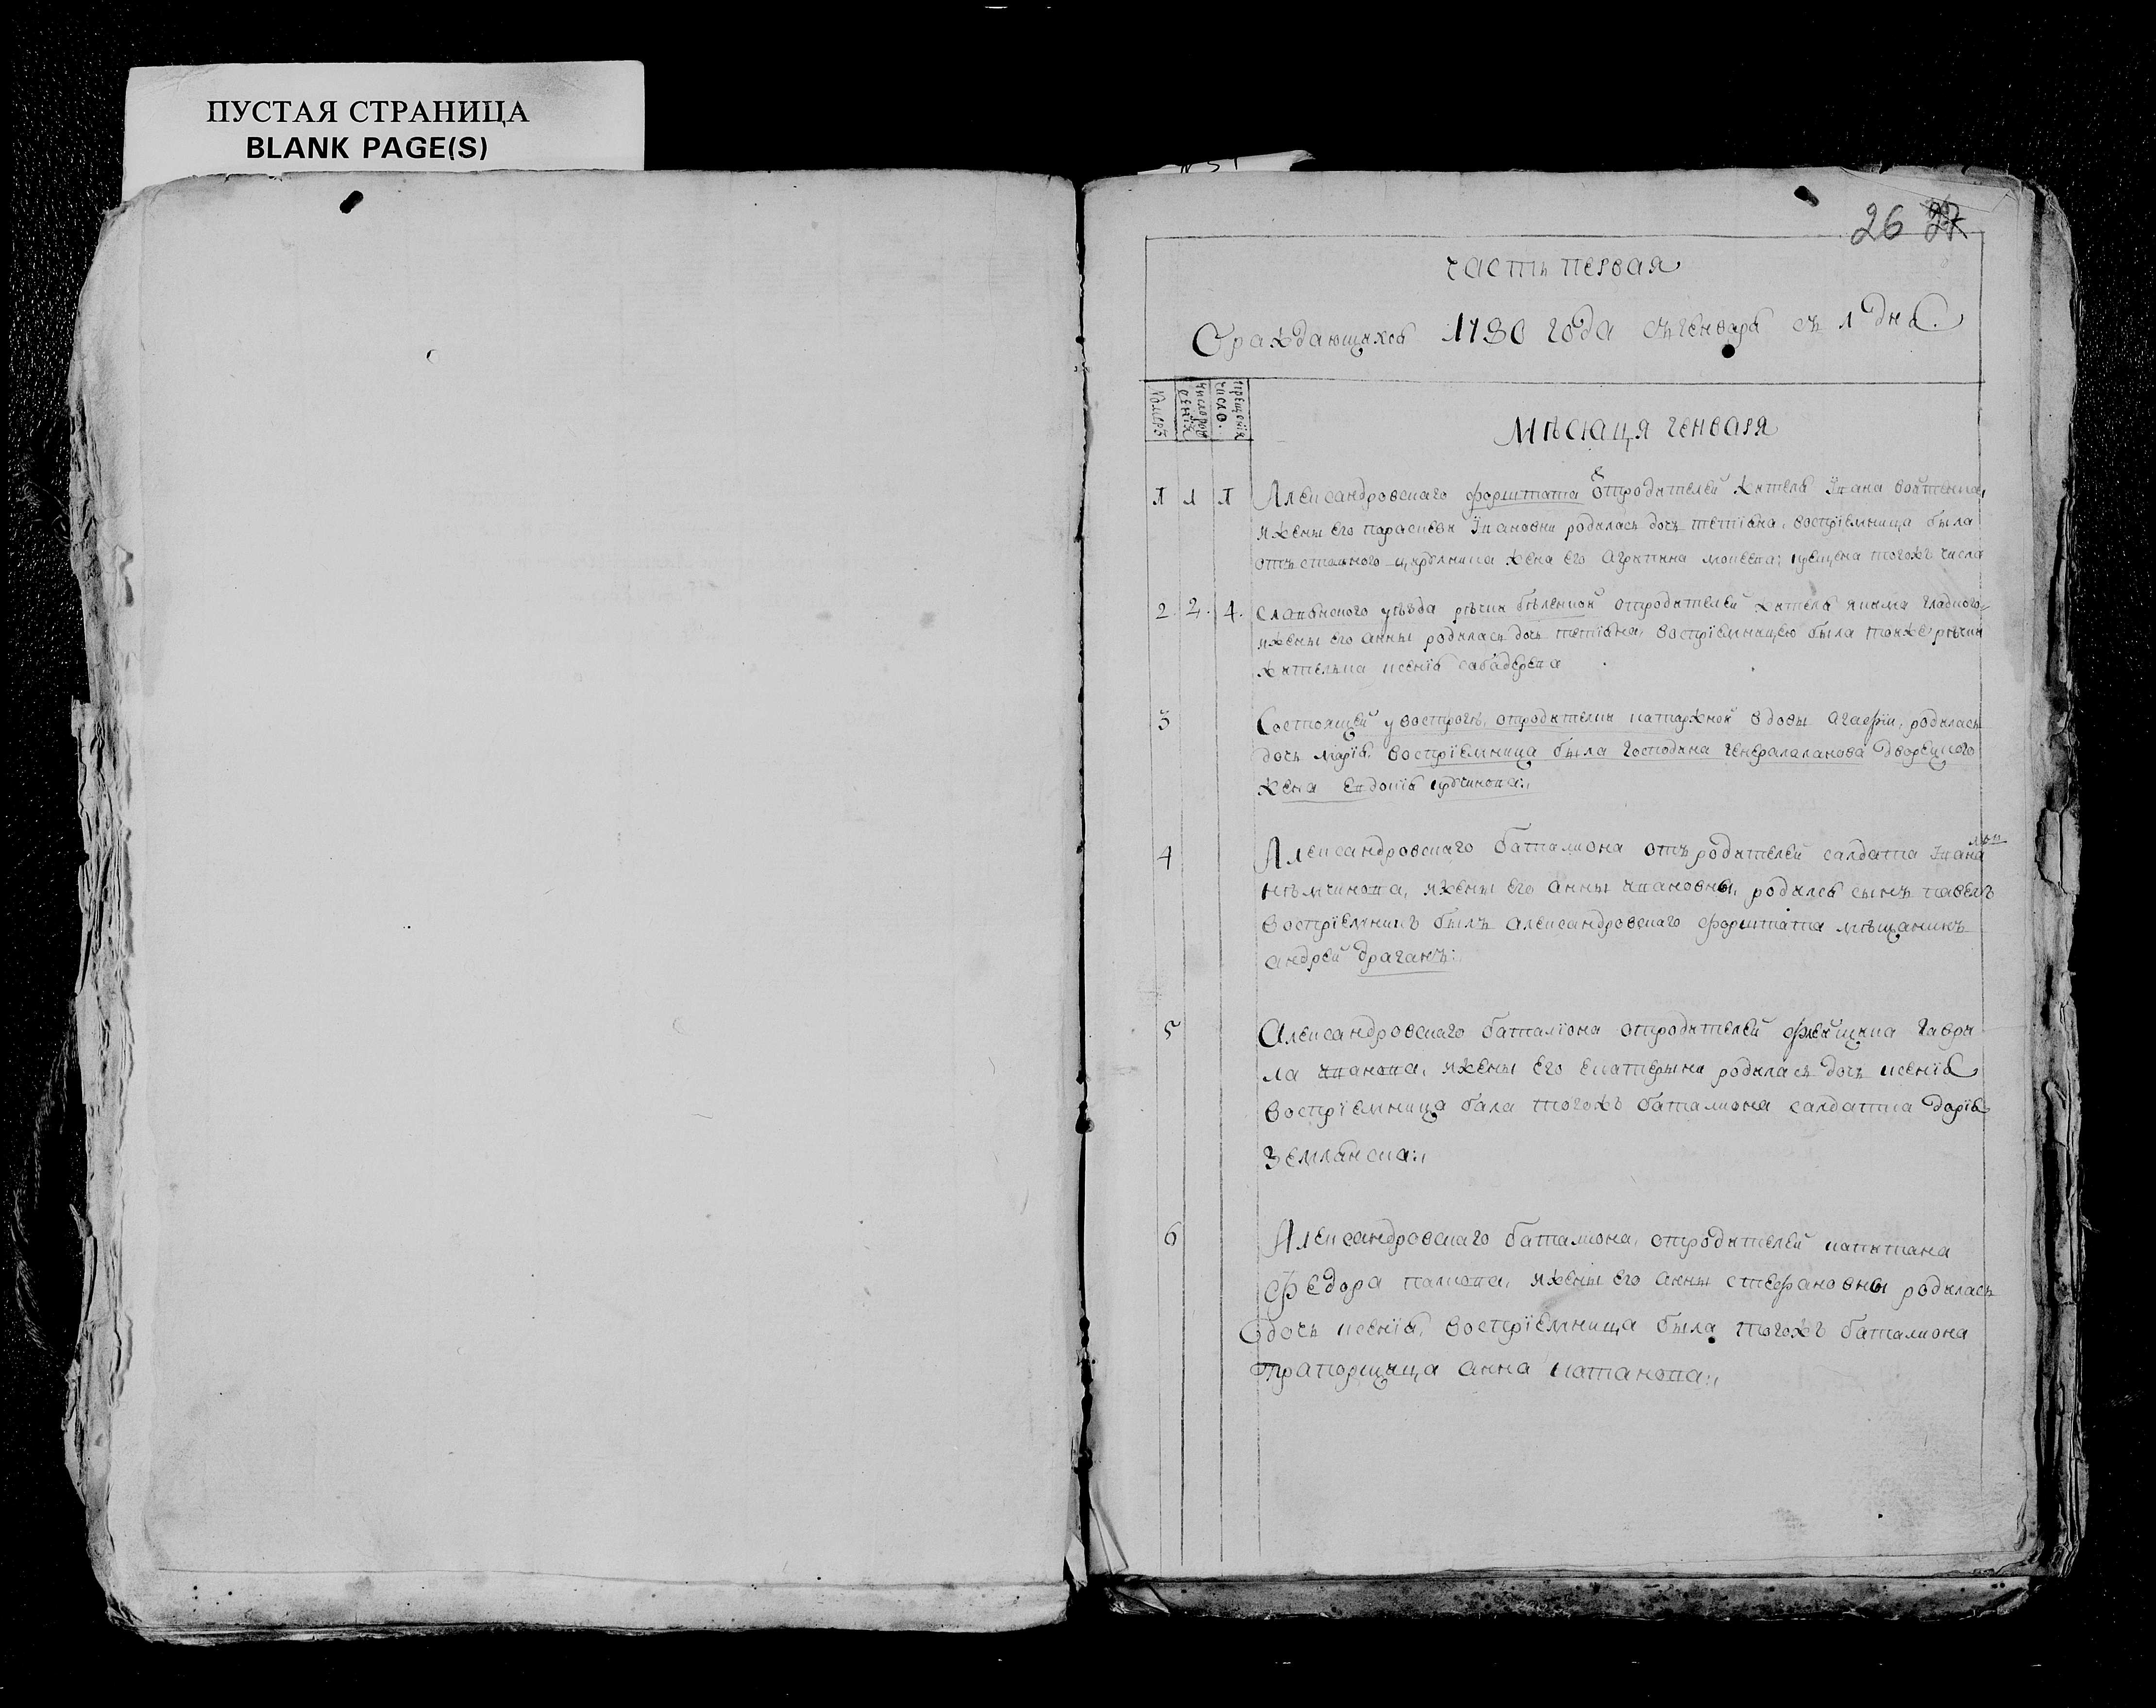 ПУСТАЯ СТРАНИЦА
BLANK PAGE(S)
26 27
часть первая
Ораждающихся 1780 года съ генваря съ 1 дня.
Номеръ
число рождения
крещения число.
Мѣсяця генваря
1 1 1 Александровскаго форштата отродителей жителя Ивана
и жены его параскеви Ивановни родилась дочь тетіяна, воспріемница была
жена его агрипина крещена тогожъ числа
2. 2. 4. Славянского уѣзда рѣчки бѣленкой отродителей жителя якима гладкого
и жены его анны родилась дочь тетіяна, воспріемницею была тоиже рѣчки
жителка ксенія
3 Состоящей у острогѣ, отродителки каторжной вдовы агафіи, родилась
дочь марія, воспріемница была господина генерала дворецкого
жена евдокія
4 Александровскаго баталиона отъ родителей салдата Ивана
нѣмчинова, и жены его анны ивановны, родился сынъ павелъ
воспріемникъ былъ александровскаго форштата мѣщанинъ
андрей драганъ:
5 Александровскаго баталіона отродителей гаври
ла иванова, и жены его екатерыни родилась дочь ксенія
воспріемница бала тогожъ баталиона салдатка дарія
Землянска:,
6 Александровскаго баталиона, отродителей капитана
Федора и жены его анны стефановны родилась
дочь ксенія, воспріемница была тогожъ баталиона
прапорщица анна